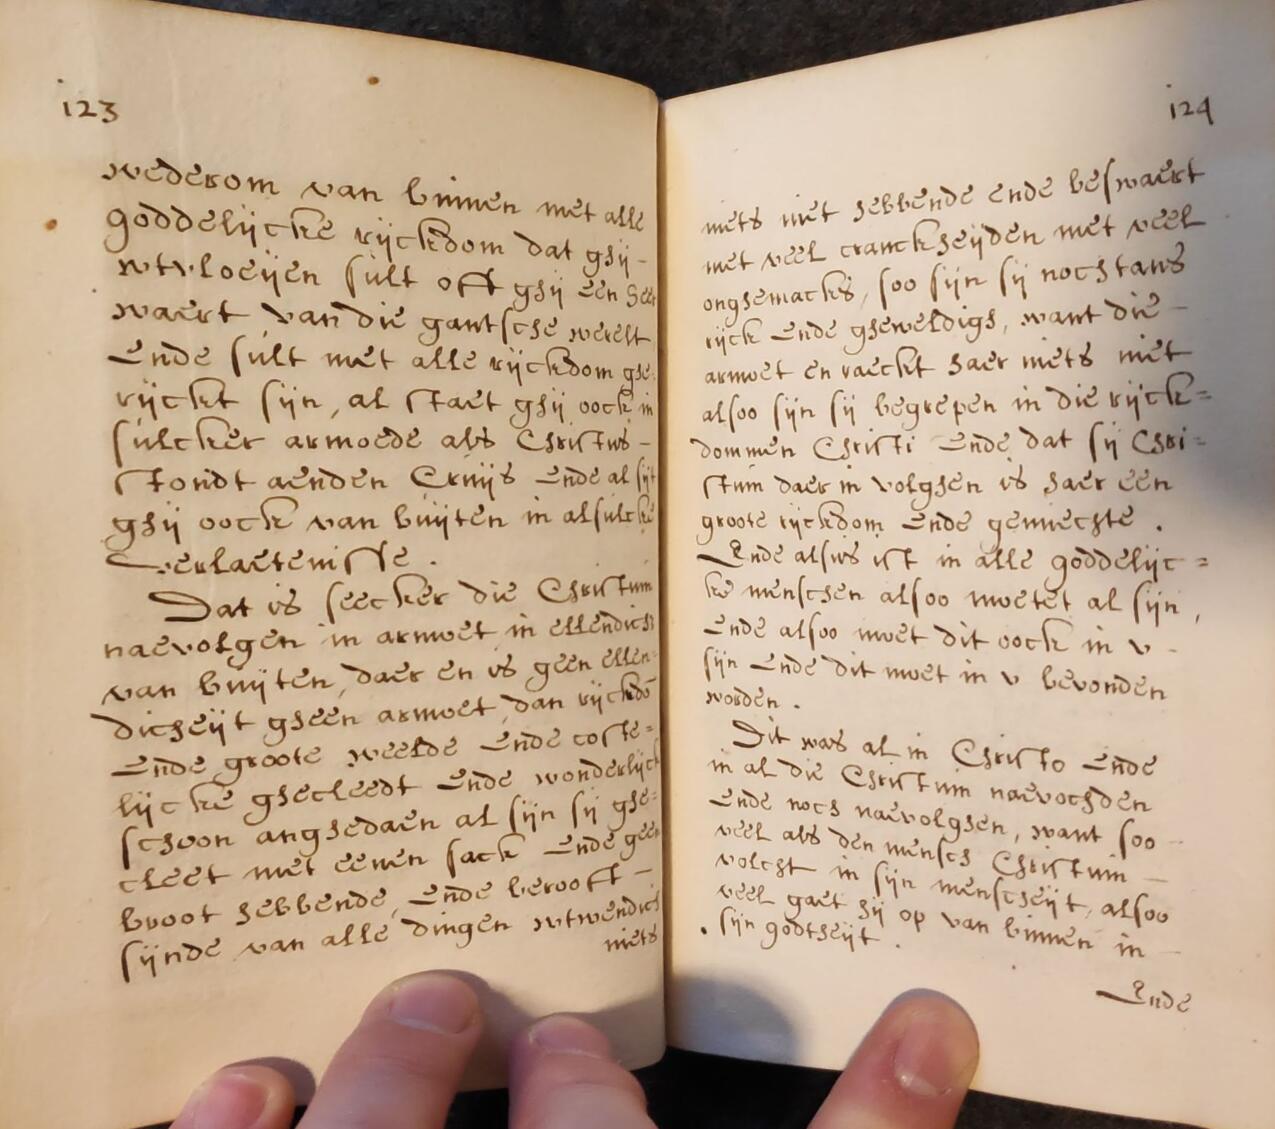 123
wederom van binnen met alle
goddelijcke rijckdom dat ghij -
wtvloeijen sult oft ghij een heer
waert van die gantsche werelt
Ende sult met alle rijckdom ghe=
rijckt sijn, al staet ghij oock in
sulcker armoede als Christus -
stondt aenden Cruijs Ende al sijt
ghij oock van buijten in alsulcke
verlaetenisse .
Dat is seecker die Christum
naevolgen in armoet in ellendich
van buijten, daer en is geen ellen=
dicheijt gheen armoet, dan rijckdō
Ende groote weelde Ende coste=
lijcke ghecleedt Ende wonderlijck
schoon anghedaen al sijn sij ghe=
cleet met eenen sack Ende geen
broot hebbende, Ende berooft -
sijnde van alle dingen wtwendich
niets
124
niets niet hebbende ende beswaert
met veel cranckheijden met veel
onghemacks, soo sijn sij nochtans
rijck Ende gheweldigh, want die -
armoet en raeckt haer niets niet
alsoo sijn sij begrepen in die rijck=
dommen Christi Ende dat sij Chri=
stum daer in volghen is haer een
groote rijckdom Ende genuechte .
Ende alsus ist in alle goddelijc=
ke menschen alsoo moetet al sijn,
Ende alsoo moet dit oock in v -
sijn Ende dit moet in v bevonden
worden .
Dit was al in Christo Ende
in al die Christum naevochden
Ende noch naevolghen, want soo -
veel als den mensch Christum -
volcht in sijn menscheijt, alsoo
veel gaet hij op van binnen in -
sijn godtheijt .
Ende